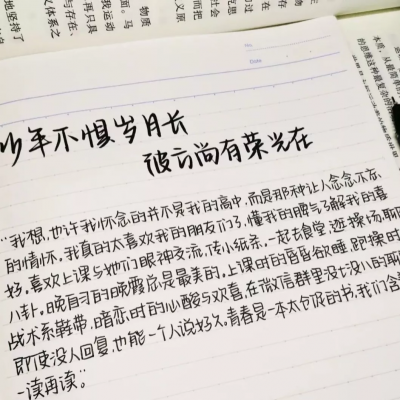 地坚持了
义体系之
与存在、
再只具
我运动
面。马
物质
而把
克思
少年不惧岁月长
彼方尚有荣光在
"我想,也许我怀念的并不是我的高中,而是那种让人念念不忘
的情怀。我真的太喜欢我的朋友们了,懂我的脾气了解我的喜
好。喜欢上课与她们眼神交流,传小纸条,一起去食堂,逛操场,聊
八卦。晚自习的晚霞总是最美的,上课时的昏昏欲睡,跑操时
战术系鞋带,暗恋时的心酸与欢喜,在微信群里没七没八的聊
即使没人回复,也能一个人说好久。青春是一本太仓促的书,我们含
一读再读。"